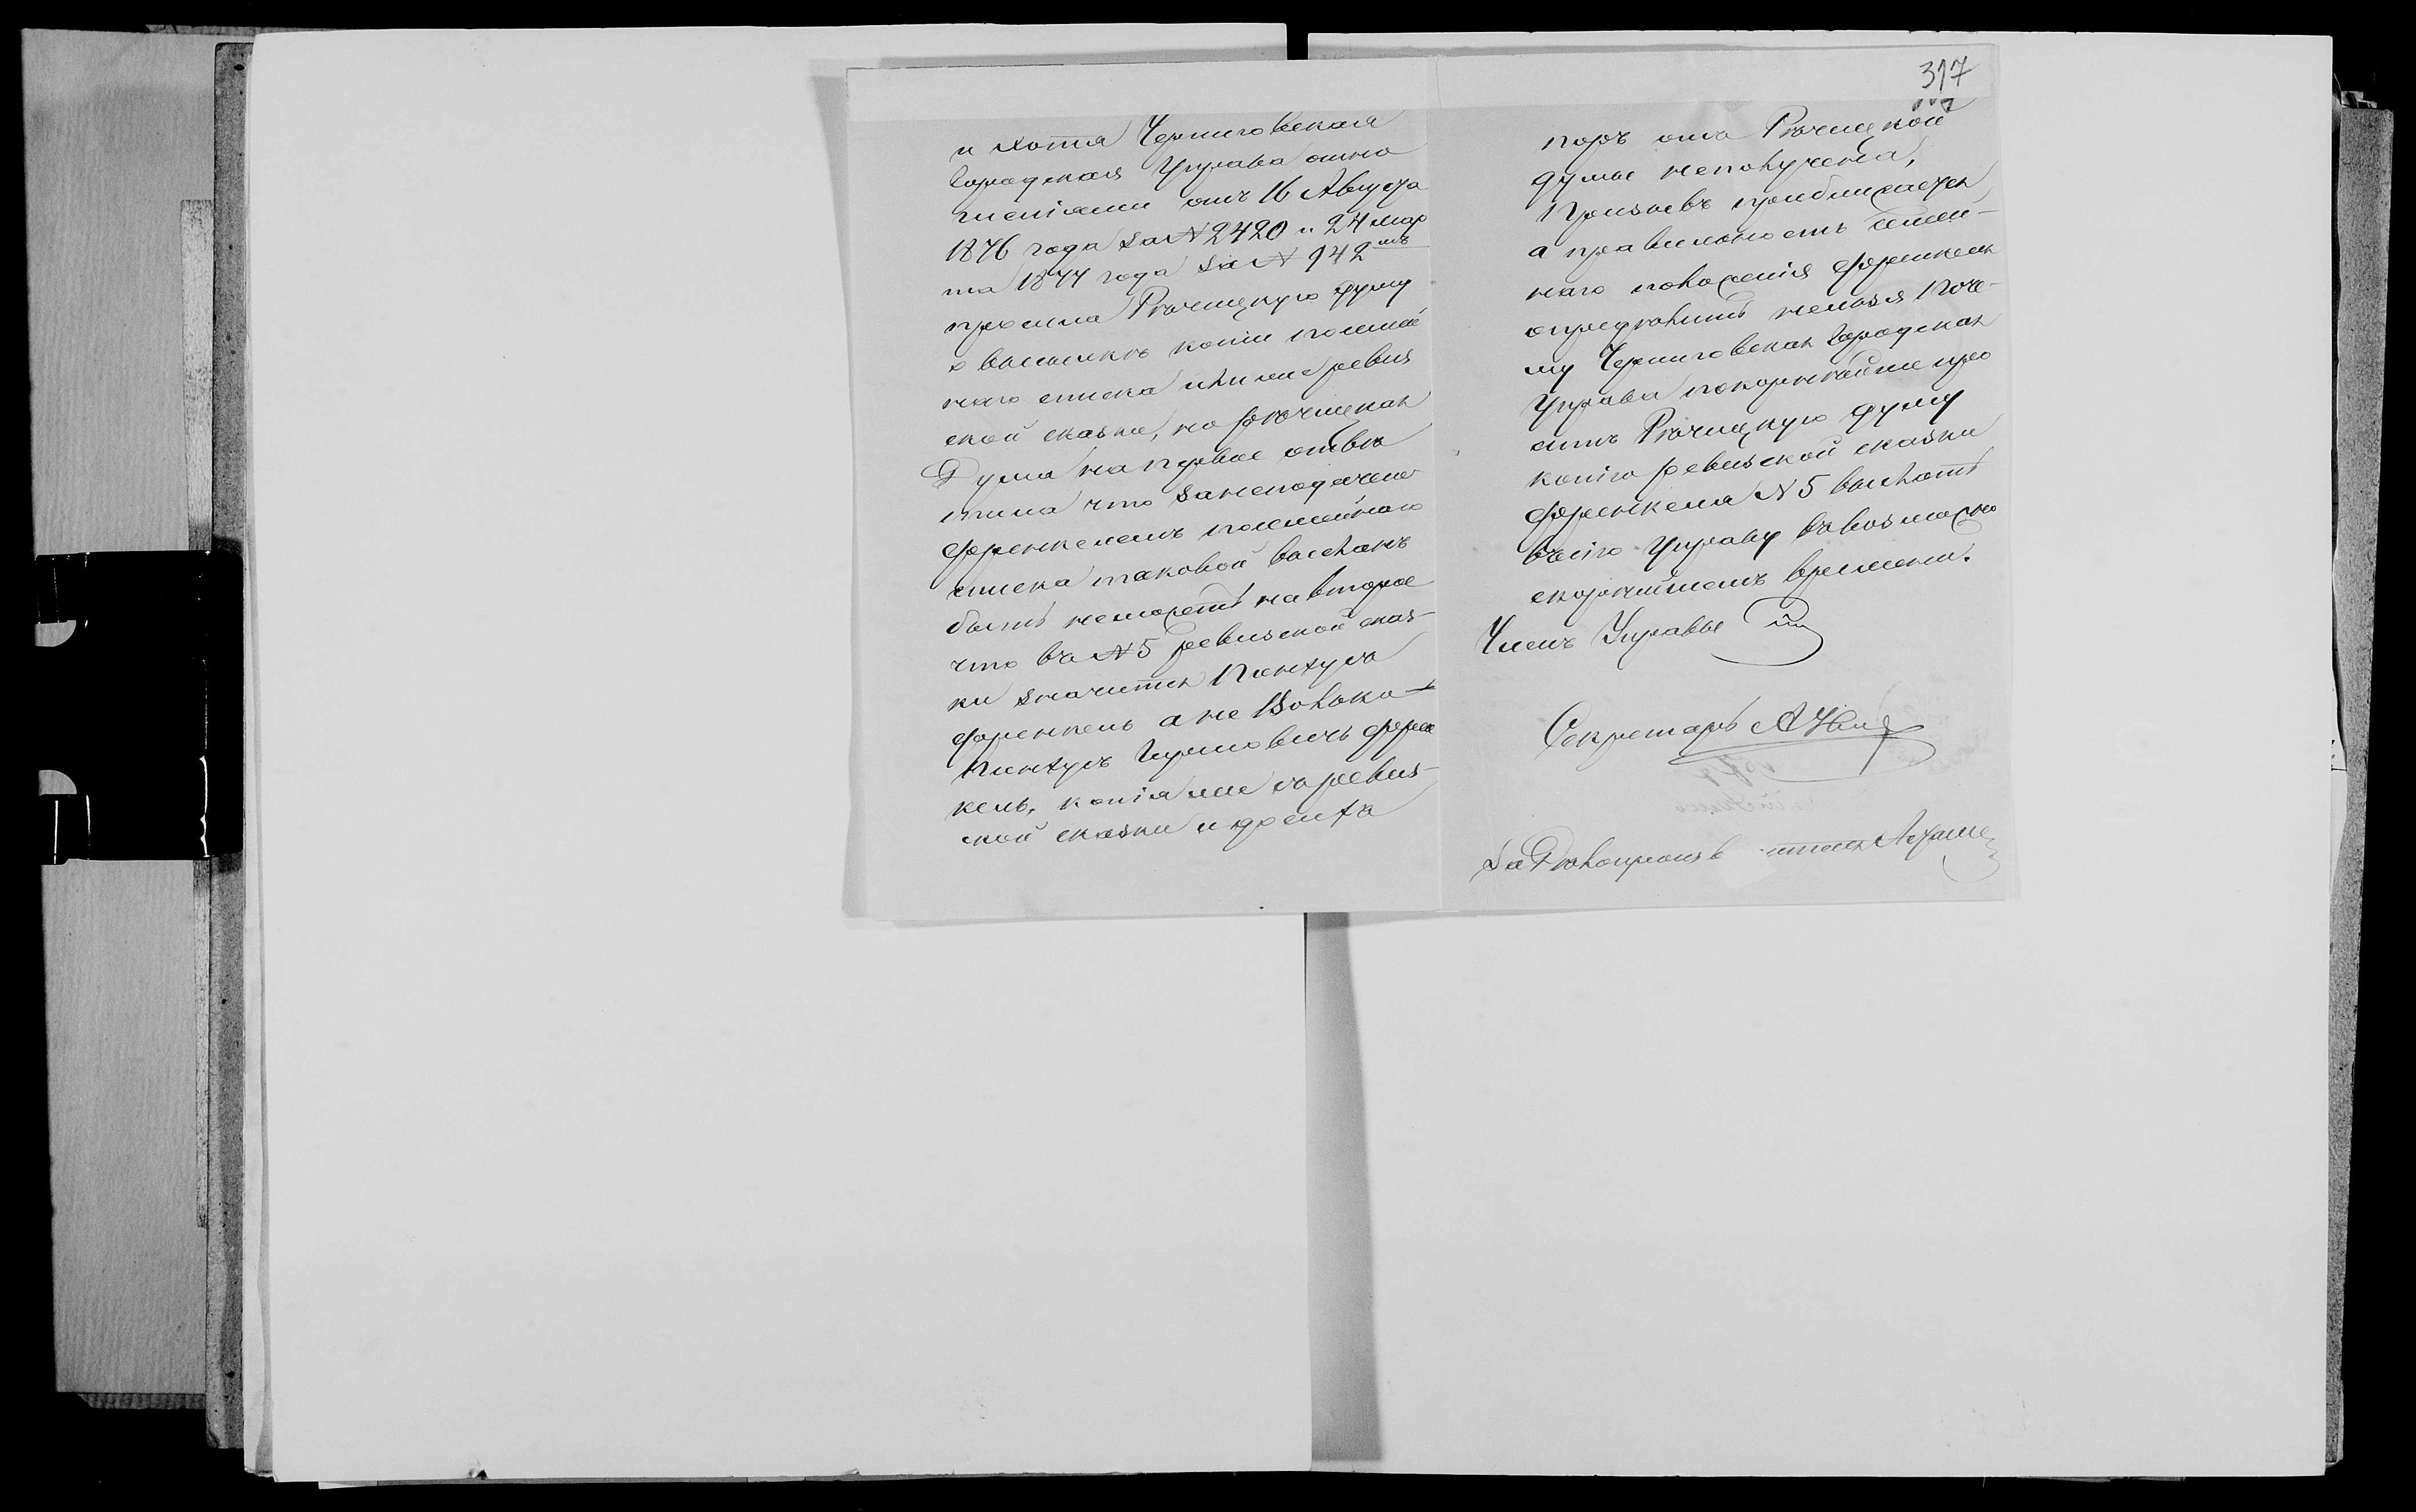 и хотя Черниговская
Городская Управа отно
шеніями отъ 16 Августа
1876 года за № 2420 и 24 мар
та 1877 года за № 942мъ
просила Рѣчицкую думу
о высылкѣ копіи посемей
наго списка или же ревиз
ской сказки, но Рѣчицкая
Дума на первое отвѣ
тила что за неподачею
Френкелемъ посемейнаго
списка таковой высланъ
быть неможетъ на второе
что въ № 5 ревизской сказ-
ки значится Пинхусъ
Френкель а не Волько-
Пинхусъ Френ
кель, копія же съ ревиз-
ской сказки и до сихъ
317
поръ отъ Рѣчицкой
думы неполучена,
Призывъ приближается
а правильность семей-
наго положенія Френкеля
опредѣлить нельзя Поче-
му Черниговская Городская
Управа покорнѣйше про
ситъ Рѣчицкую думу
копію ревизской сказки
Френкеля № 5 выслать
въ сію Управу въ возможно
скорѣйшемъ времени.
Членъ Управы
Секретарь А
За Дѣлопроизв